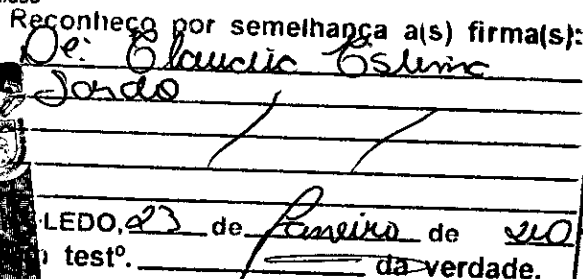 Reconheço por semelhança a(s) firma(s):
De: Claudia
LEDO, 23 de Janeiro de
testº. da verdade.